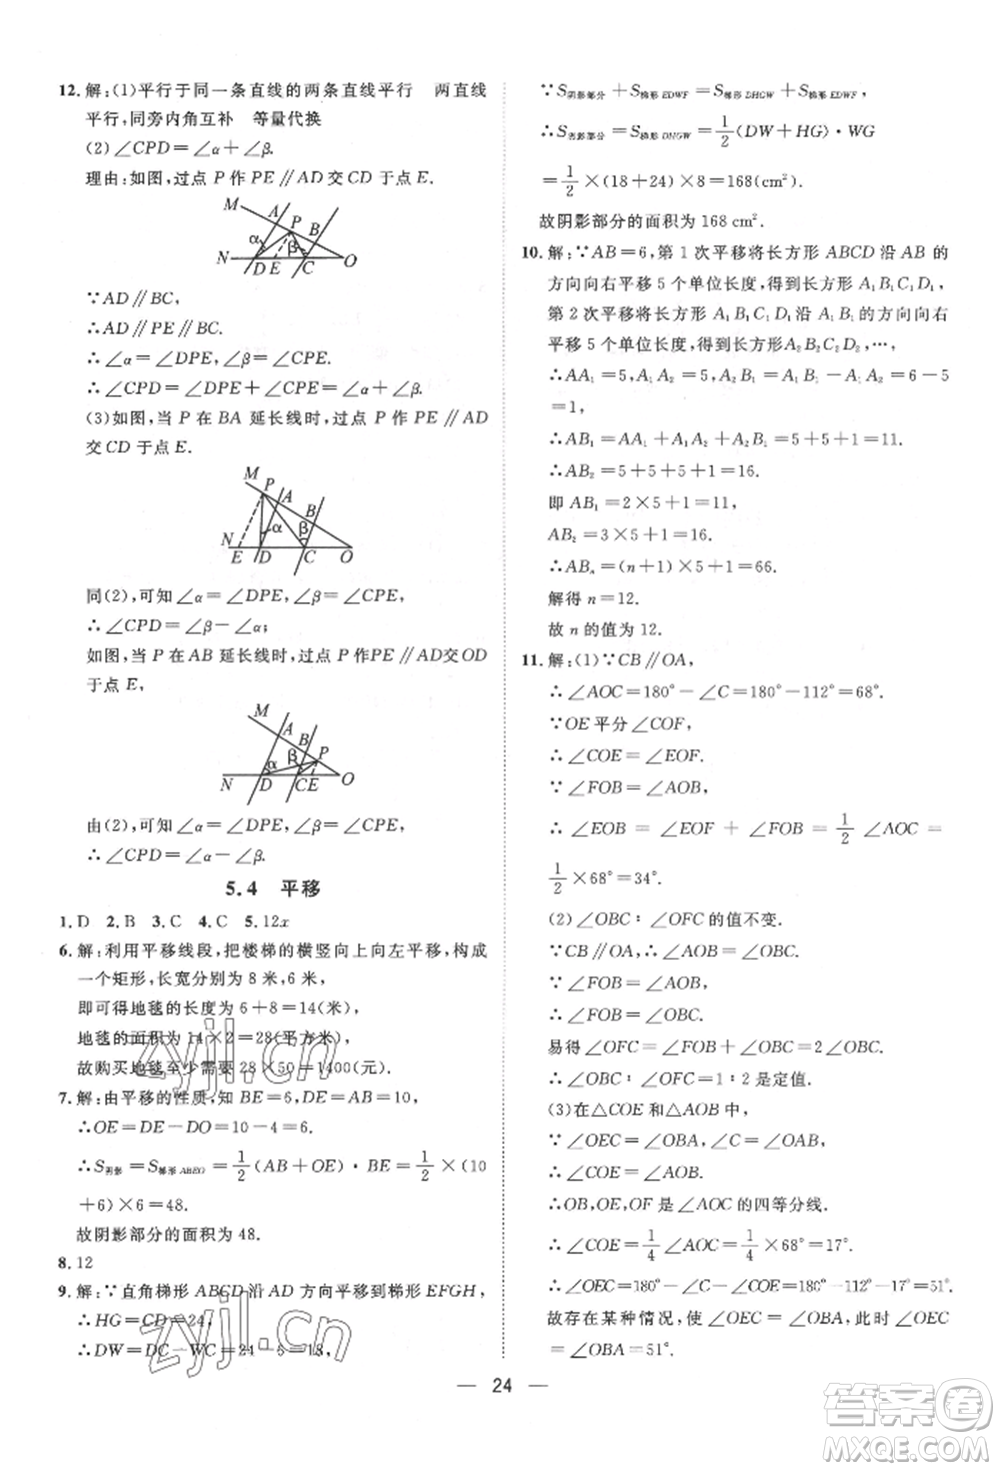 12. 解:(1)平行于同一条直线的两条直线平行　两直线
平行,同旁内角互补　等量代换
(2)∠CPD=∠α+∠β.
理由:如图,过点 P 作 PE∥AD交 CD 于点 E.
M A P B
α β
N D E C O
∵AD∥BC,
∴AD∥PE∥BC.
∴∠α=∠DPE,∠β=∠CPE.
∴∠CPD=∠DPE+∠CPE=∠α+∠β.
(3)如图,当 P 在 BA 延长线时,过点 P 作 PE∥AD
交 CD 于点 E.
M P A B
α β
N E D C O
同(2),可知∠α=∠DPE,∠β=∠CPE.
∴∠CPD=∠β-∠α;
如图,当 P 在 AB 延长线时,过点 P 作 PE∥AD交 OD
于点 E,
M A B P
α β
N D CE O
由(2),可知∠α=∠DPE,∠β=∠CPE.
∴∠CPD=∠α-∠β.
5.4　平移
1.D　2.B　3.C　4.C　5.12x
6. 解:利用平移线段,把楼梯的横竖向上向左平移,构成
一个矩形,长宽分别为 8 米,6 米,
即可得地毯的长度为 6+8=14(米),
地毯的面积为 14×2=28(平方米),
故购买地毯至少需要 28×50=1400(元).
7. 解:由平移的性质,知 BE=6,AB=DE=10,
∴OE=DE-DO=10-4=6.
∴S阴影=S梯形ABEO=1/2(AB+OE)·BE=1/2×(10
+6)×6=48.
故阴影部分的面积为 48.
8. 12
9. 解:∵直角梯形 ABCD沿 AD 方向平移到梯形 EFGH,
∴HG=CD=24,
∴DW=DC-WC=24-6=18,
∵S阴影部分+S梯形EDWF=S梯形DHGW+S梯形EDWF,
∴S阴影部分=S梯形DHGW=1/2(DW+HG)·WG
=1/2×(18+24)×8=168(cm²).
故阴影部分的面积为 168 cm².
10. 解:∵AB=6,第 1 次平移将长方形 ABCD 沿 AB 的
方向向右平移 5 个单位长度,得到长方形 A₁B₁C₁D₁,
第 2 次平移将长方形 A₁B₁C₁D₁沿 A₁B₁的方向向右
平移 5 个单位长度,得到长方形A₂B₂C₂D₂,…,
∴AA₁=5,A₁A₂=5,A₂B₁=A₁B₁-A₁A₂=6-5
=1,
∴AB₁=AA₁+A₁A₂+A₂B₁=5+5+1=11.
∴AB₂=5+5+5+1=16.
即 AB₁=2×5+1=11,
AB₂=3×5+1=16.
∴ABₙ=(n+1)×5+1=66.
解得 n=12.
故 n 的值为 12.
11. 解:(1)∵CB∥OA,
∴∠AOC=180°-∠C=180°-112°=68°.
∵OE平分∠COF,
∴∠COE=∠EOF.
∵∠FOB=∠AOB,
∴∠EOB=∠EOF+∠FOB=1/2∠AOC=
1/2×68°=34°.
(2)∠OBC∶∠OFC 的值不变.
∵CB∥OA,∴∠OBC=∠AOB.
∵∠FOB=∠AOB,
∴∠FOB=∠OBC.
易得∠OFC=∠FOB+∠OBC=2∠OBC,
∴∠OBC∶∠OFC=1∶2 是定值.
(3)在△COE 和△AOB 中,
∵∠OEC=∠OBA,∠C=∠OAB,
∴∠COE=∠AOB.
∴OB,OE,OF是∠AOC的四等分线.
∴∠COE=1/4∠AOC=1/4×68°=17°.
∴∠OEC=180°-∠C-∠COE=180°-112°-17°=51°.
故存在某种情况,使∠OEC=∠OBA,此时∠OEC=
∠OBA=51°.
— 24 —
zyjl.cn
zyjl.cn
答案圈
MXQE.COM